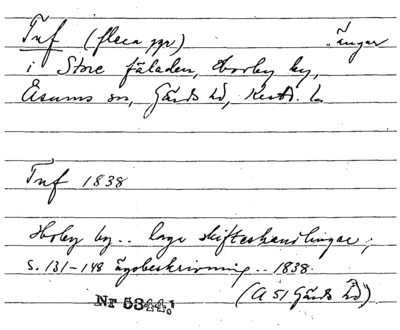 Tuf (flera ppr) ängar
i Store fäladen, Horby by,
Äsums sn, Gärds hd, Krist. l.
Tuf 1838
Horby by.. laga skifteshandlingar;
s. 131-148 ägobeskrivning.. 1838.
(A 51 Gärds hd)
Nr 5344.